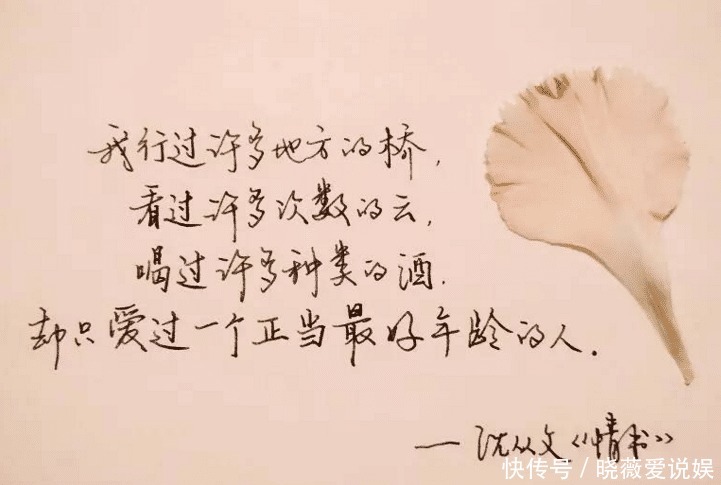 我行过许多地方的桥,
看过许多次数的云,
喝过许多种类的酒.
却只爱过一个正当最好年龄的人.
——沈从文《情书》
快传号/晓薇爱说娱